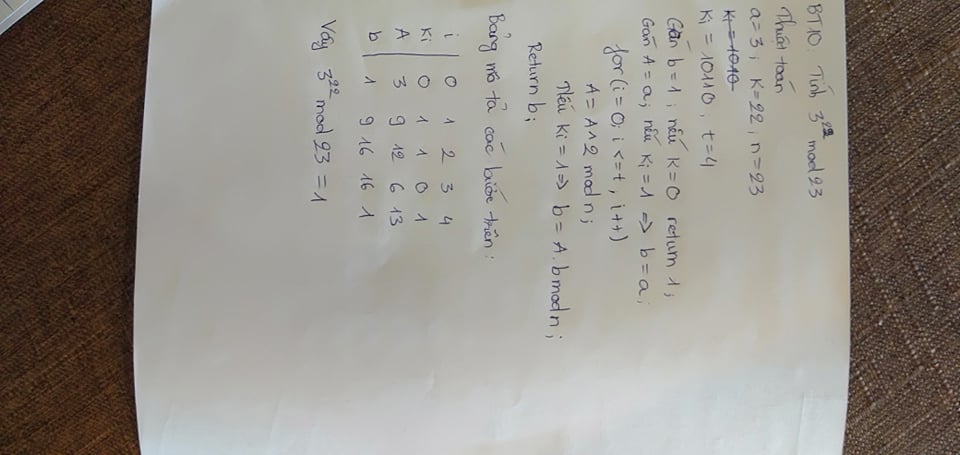 BT10. Tính 3^22 mod 23
Thuật toán
a=3; K=22, n=23
Ki = 1010
Ki = 10110, t=4
Gán b=1; nếu K=0 return 1;
Gán A=a; nếu Ki=1 => b=a;
for(i=0; i<=t, i++)
A= A^2 mod n;
Nếu Ki=1=> b=A.b mod n;
Return b;
Bảng mô tả các bước trên:
i | 0 1 2 3 4
Ki | 0 1 1 0 1
A | 3 9 12 6 13
b | 1 9 16 16 1
Vậy 3^22 mod 23 = 1